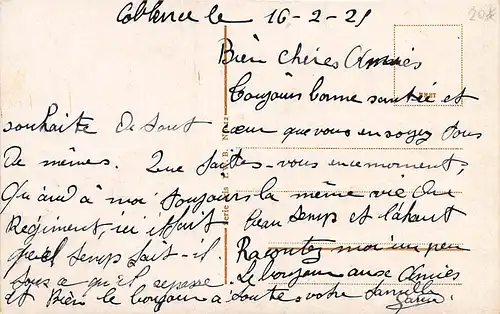 Coblence le 16-2-21
Bien chères Amies
Toujours bonne santée et
souhaite de tout
cœur que vous en soyez tous
de mêmes. Que faites-vous en ce moment,
Quand à moi toujours la même vie du
Régiment, ici il fait
beau temps et là haut
quel temps fait-il
Racontez moi un peu
tous ce qu'il se passe.
Le bonjour aux Amies
et Bien le bonjour à toute votre famille